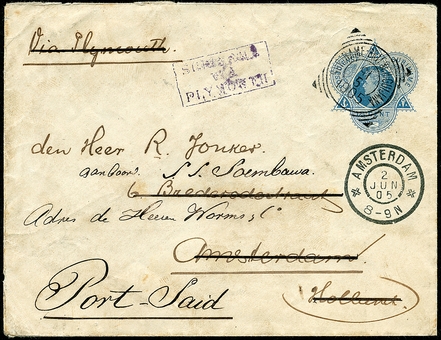 Via Plymouth.
VIA
PLYMOUTH
den Heer R. Jonker.
aan boord S.S. Soembawa.
6 Brederodestraat
Adres de Heeren Worms & Co
Amsterdam.
Port-Said
Holland.
AMSTERDAM
2
JUN
05
8-9N